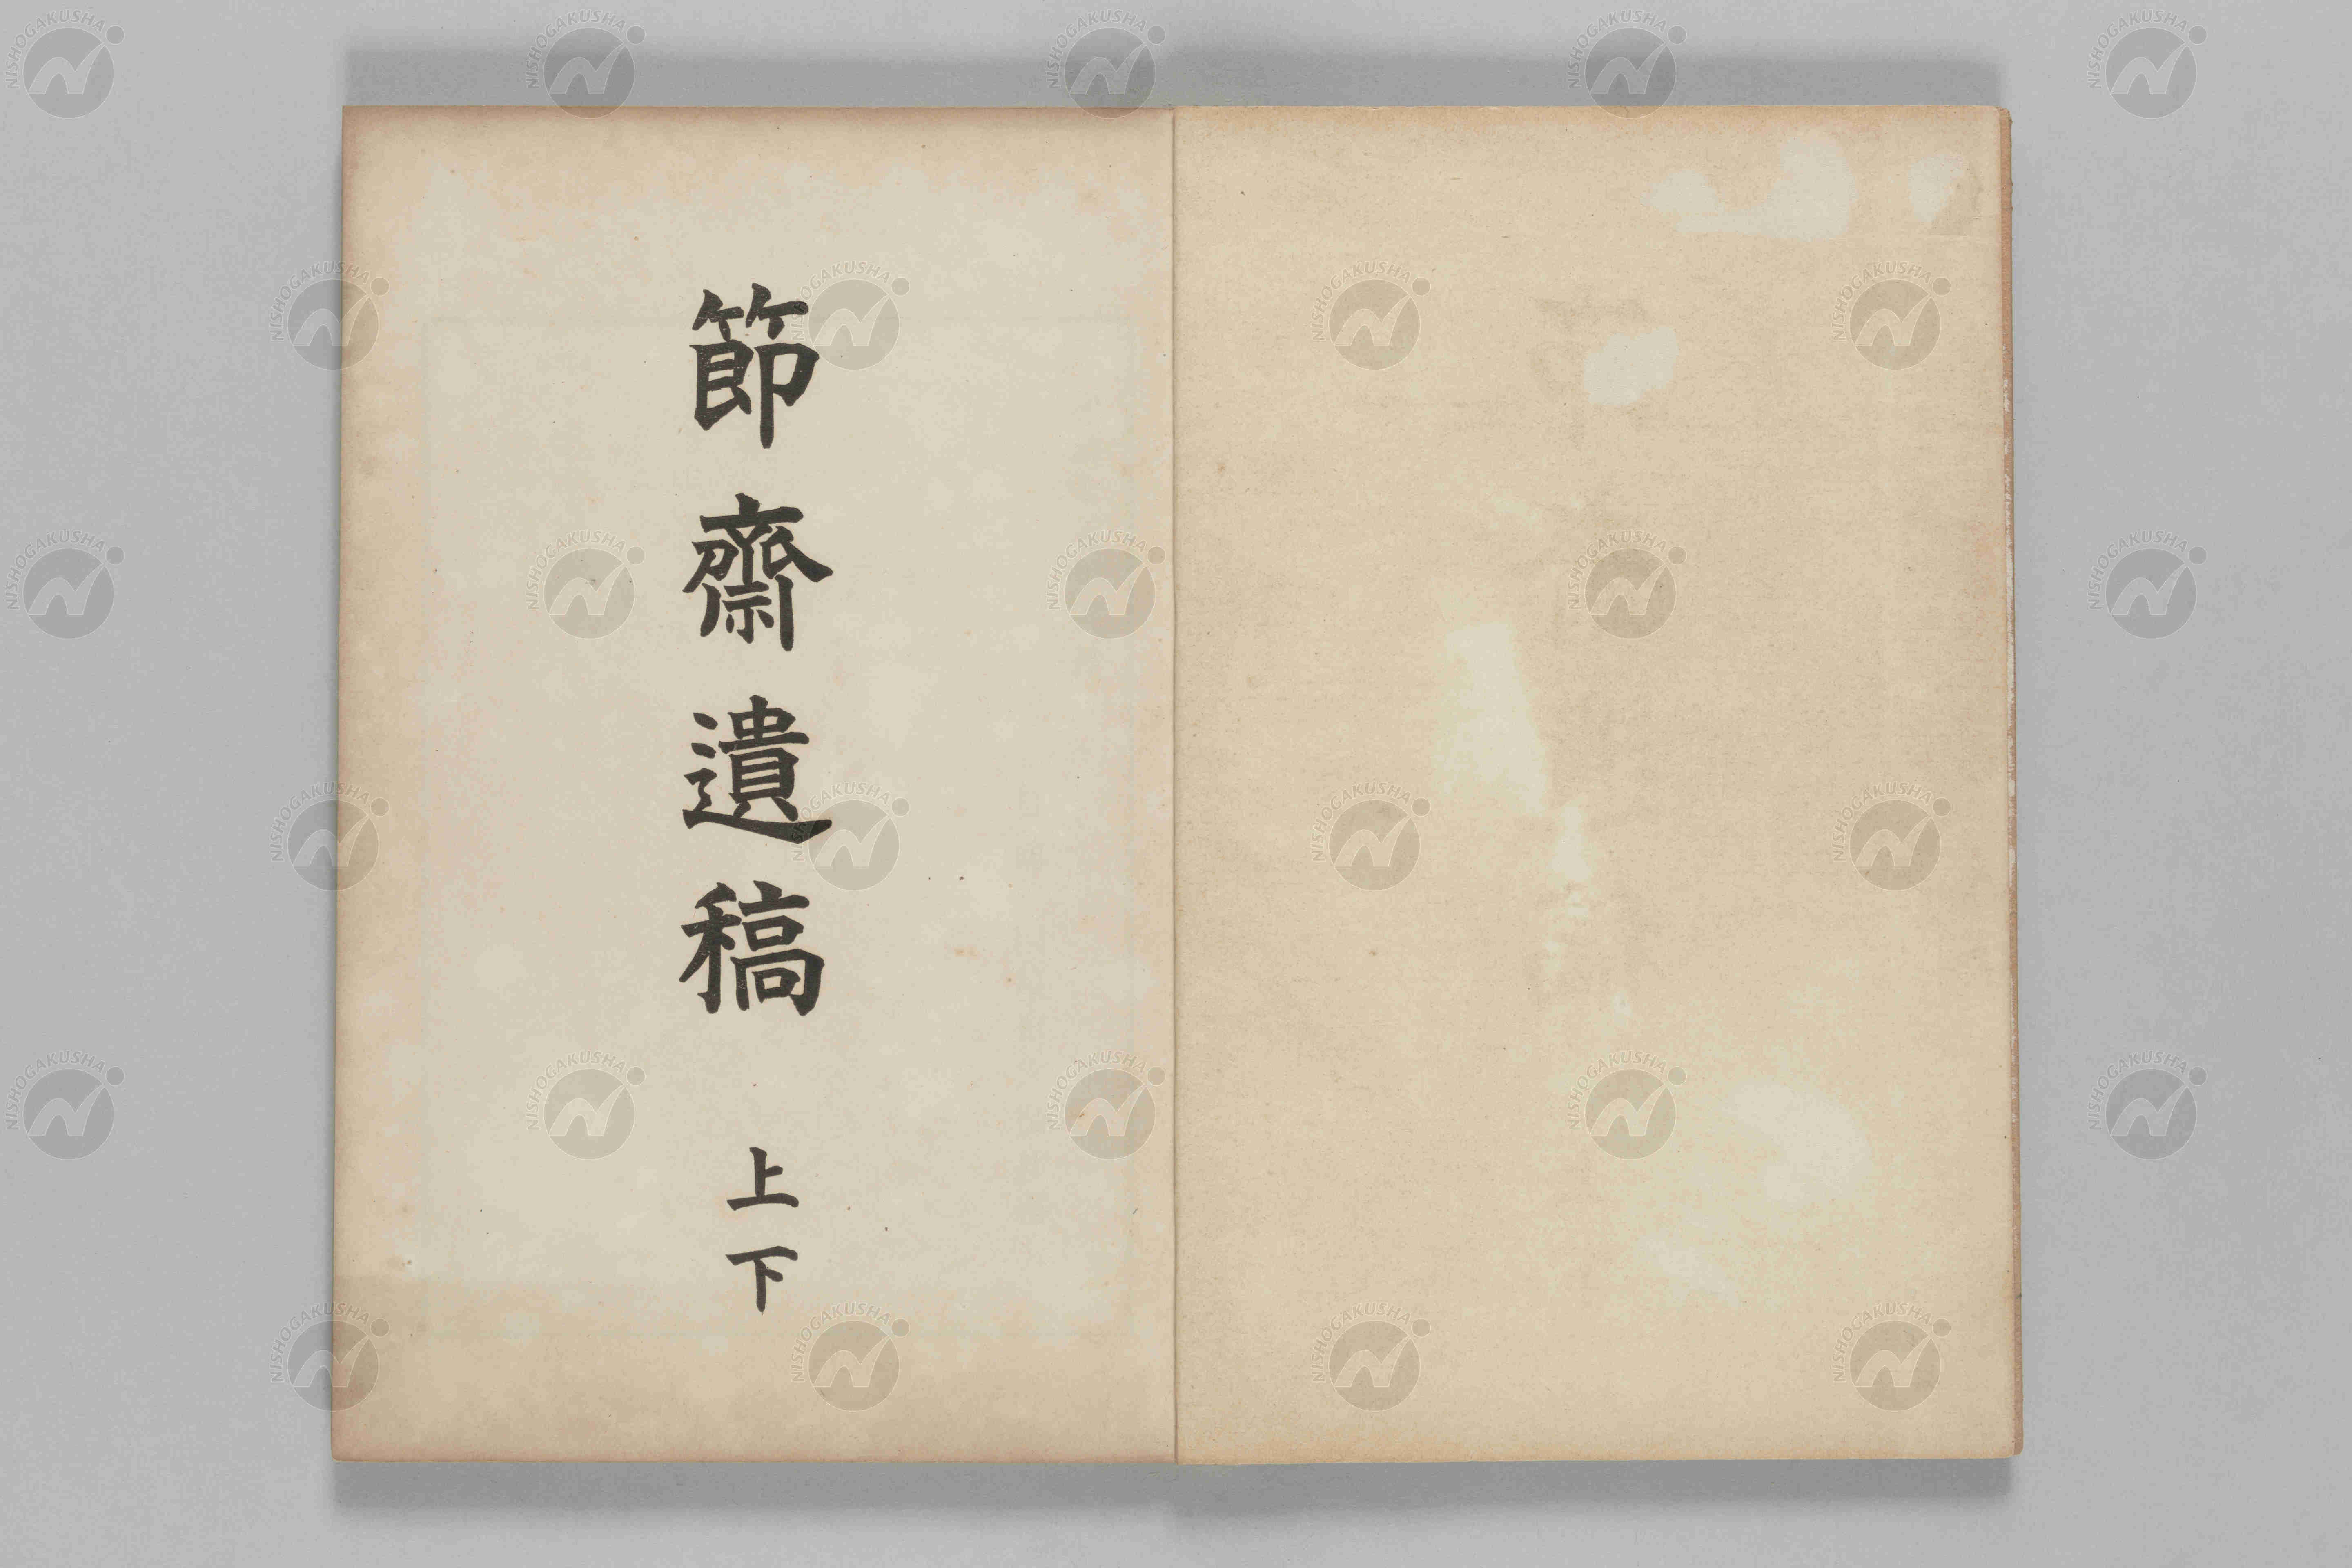 節齋遺稿 上下
NISHOGAKUSHA